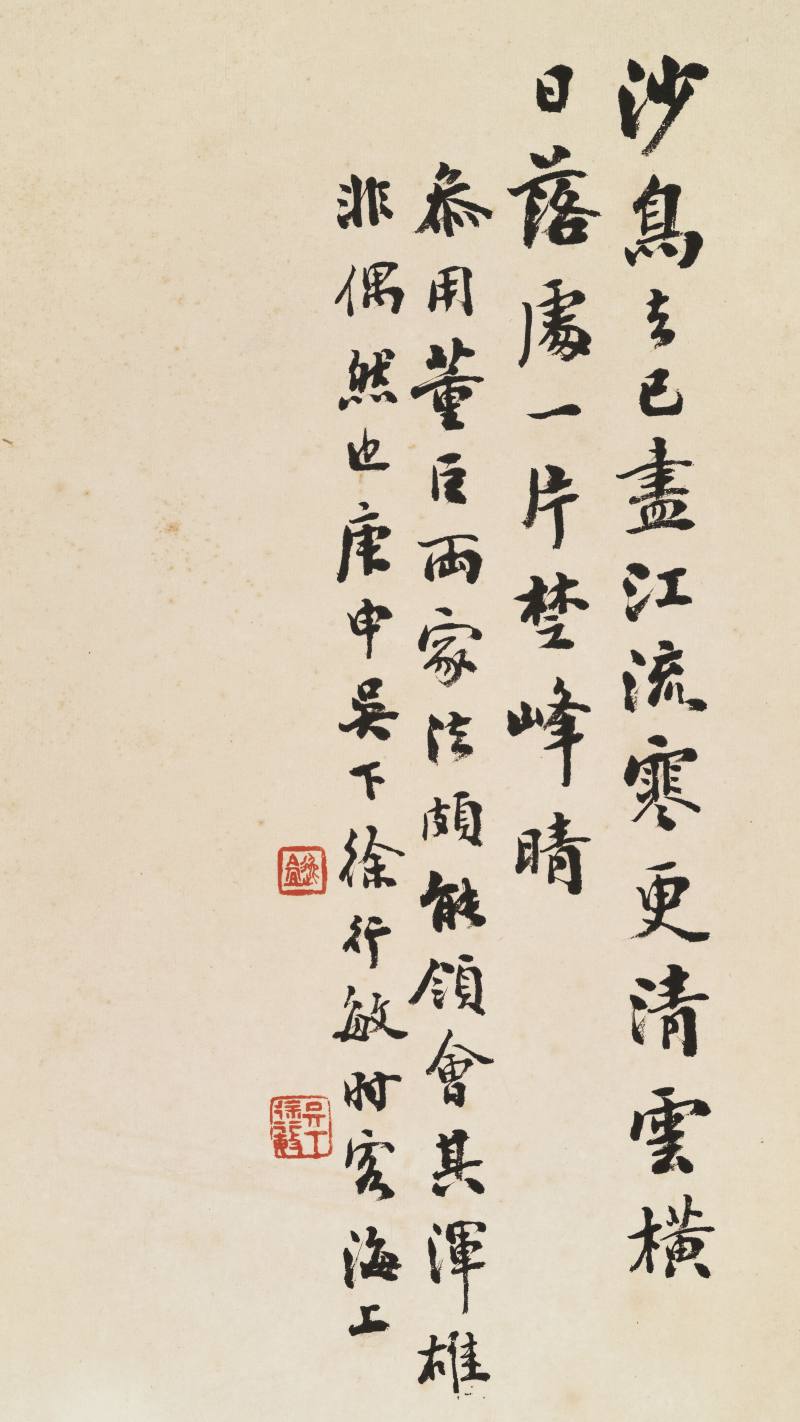 沙鳥去已盡江流寒更清雲橫
日落處一片楚峰晴
叅用董巨兩家法頗能領會其渾雄
非偶然也庚申吳下徐行敏时客海上